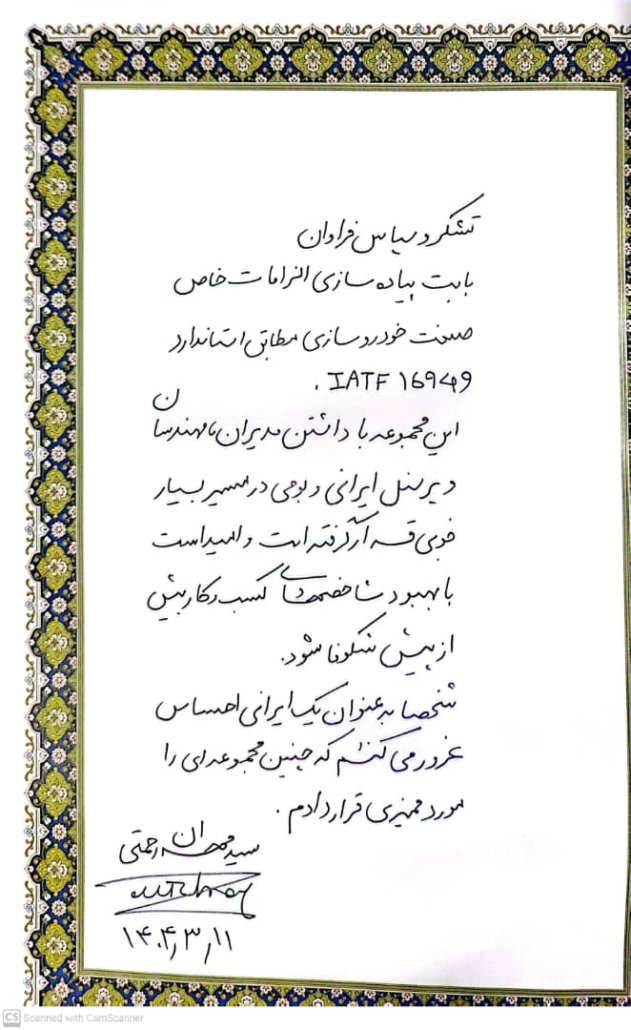 تشکر و سپاس فراوان
بابت پیاده سازی الزامات خاص
صنعت خودرو سازی مطابق استاندارد
IATF 16949 .
این مجموعه با داشتن مدیران، مهندسان
و پرسنل ایرانی و بومی در مسیر بسیار
خوبی قرار گرفته است و امید است
با بهبود شاخصهای کسب و کار بیش
از پیش شکوفا شود.
شخصا به عنوان یک ایرانی احساس
غرور می کنم که چنین مجموعه ای را
مورد ممیزی قرار دادم .
سید مهران رحمتی
۱۴۰۴,۳,۱۱
CS Scanned with CamScanner